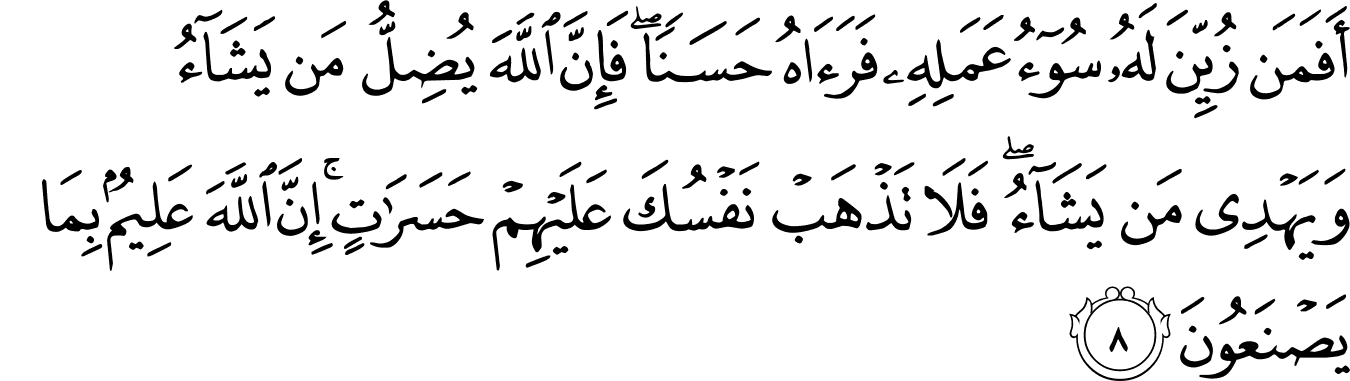 أَفَمَن زُيِّنَ لَهُۥ سُوٓءُ عَمَلِهِۦ فَرَءَاهُ حَسَنٗاۖ فَإِنَّ ٱللَّهَ يُضِلُّ مَن يَشَآءُ
وَيَهۡدِي مَن يَشَآءُۖ فَلَا تَذۡهَبۡ نَفۡسُكَ عَلَيۡهِمۡ حَسَرَٰتٍۚ إِنَّ ٱللَّهَ عَلِيمُۢ بِمَا
يَصۡنَعُونَ ٨